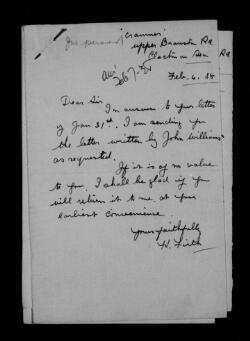 "Cranmer"
Upper Branston Rd
Clacton on Sea
Feb. 6. 34
Dear Sir
In answer to your letter
of Jan 31st. I am sending you
the letter written by John Williams
as requested.
If it is of no value
to you. I shall be glad if you
will return it to me at your
earliest convenience.
Yours faithfully
H. Firth